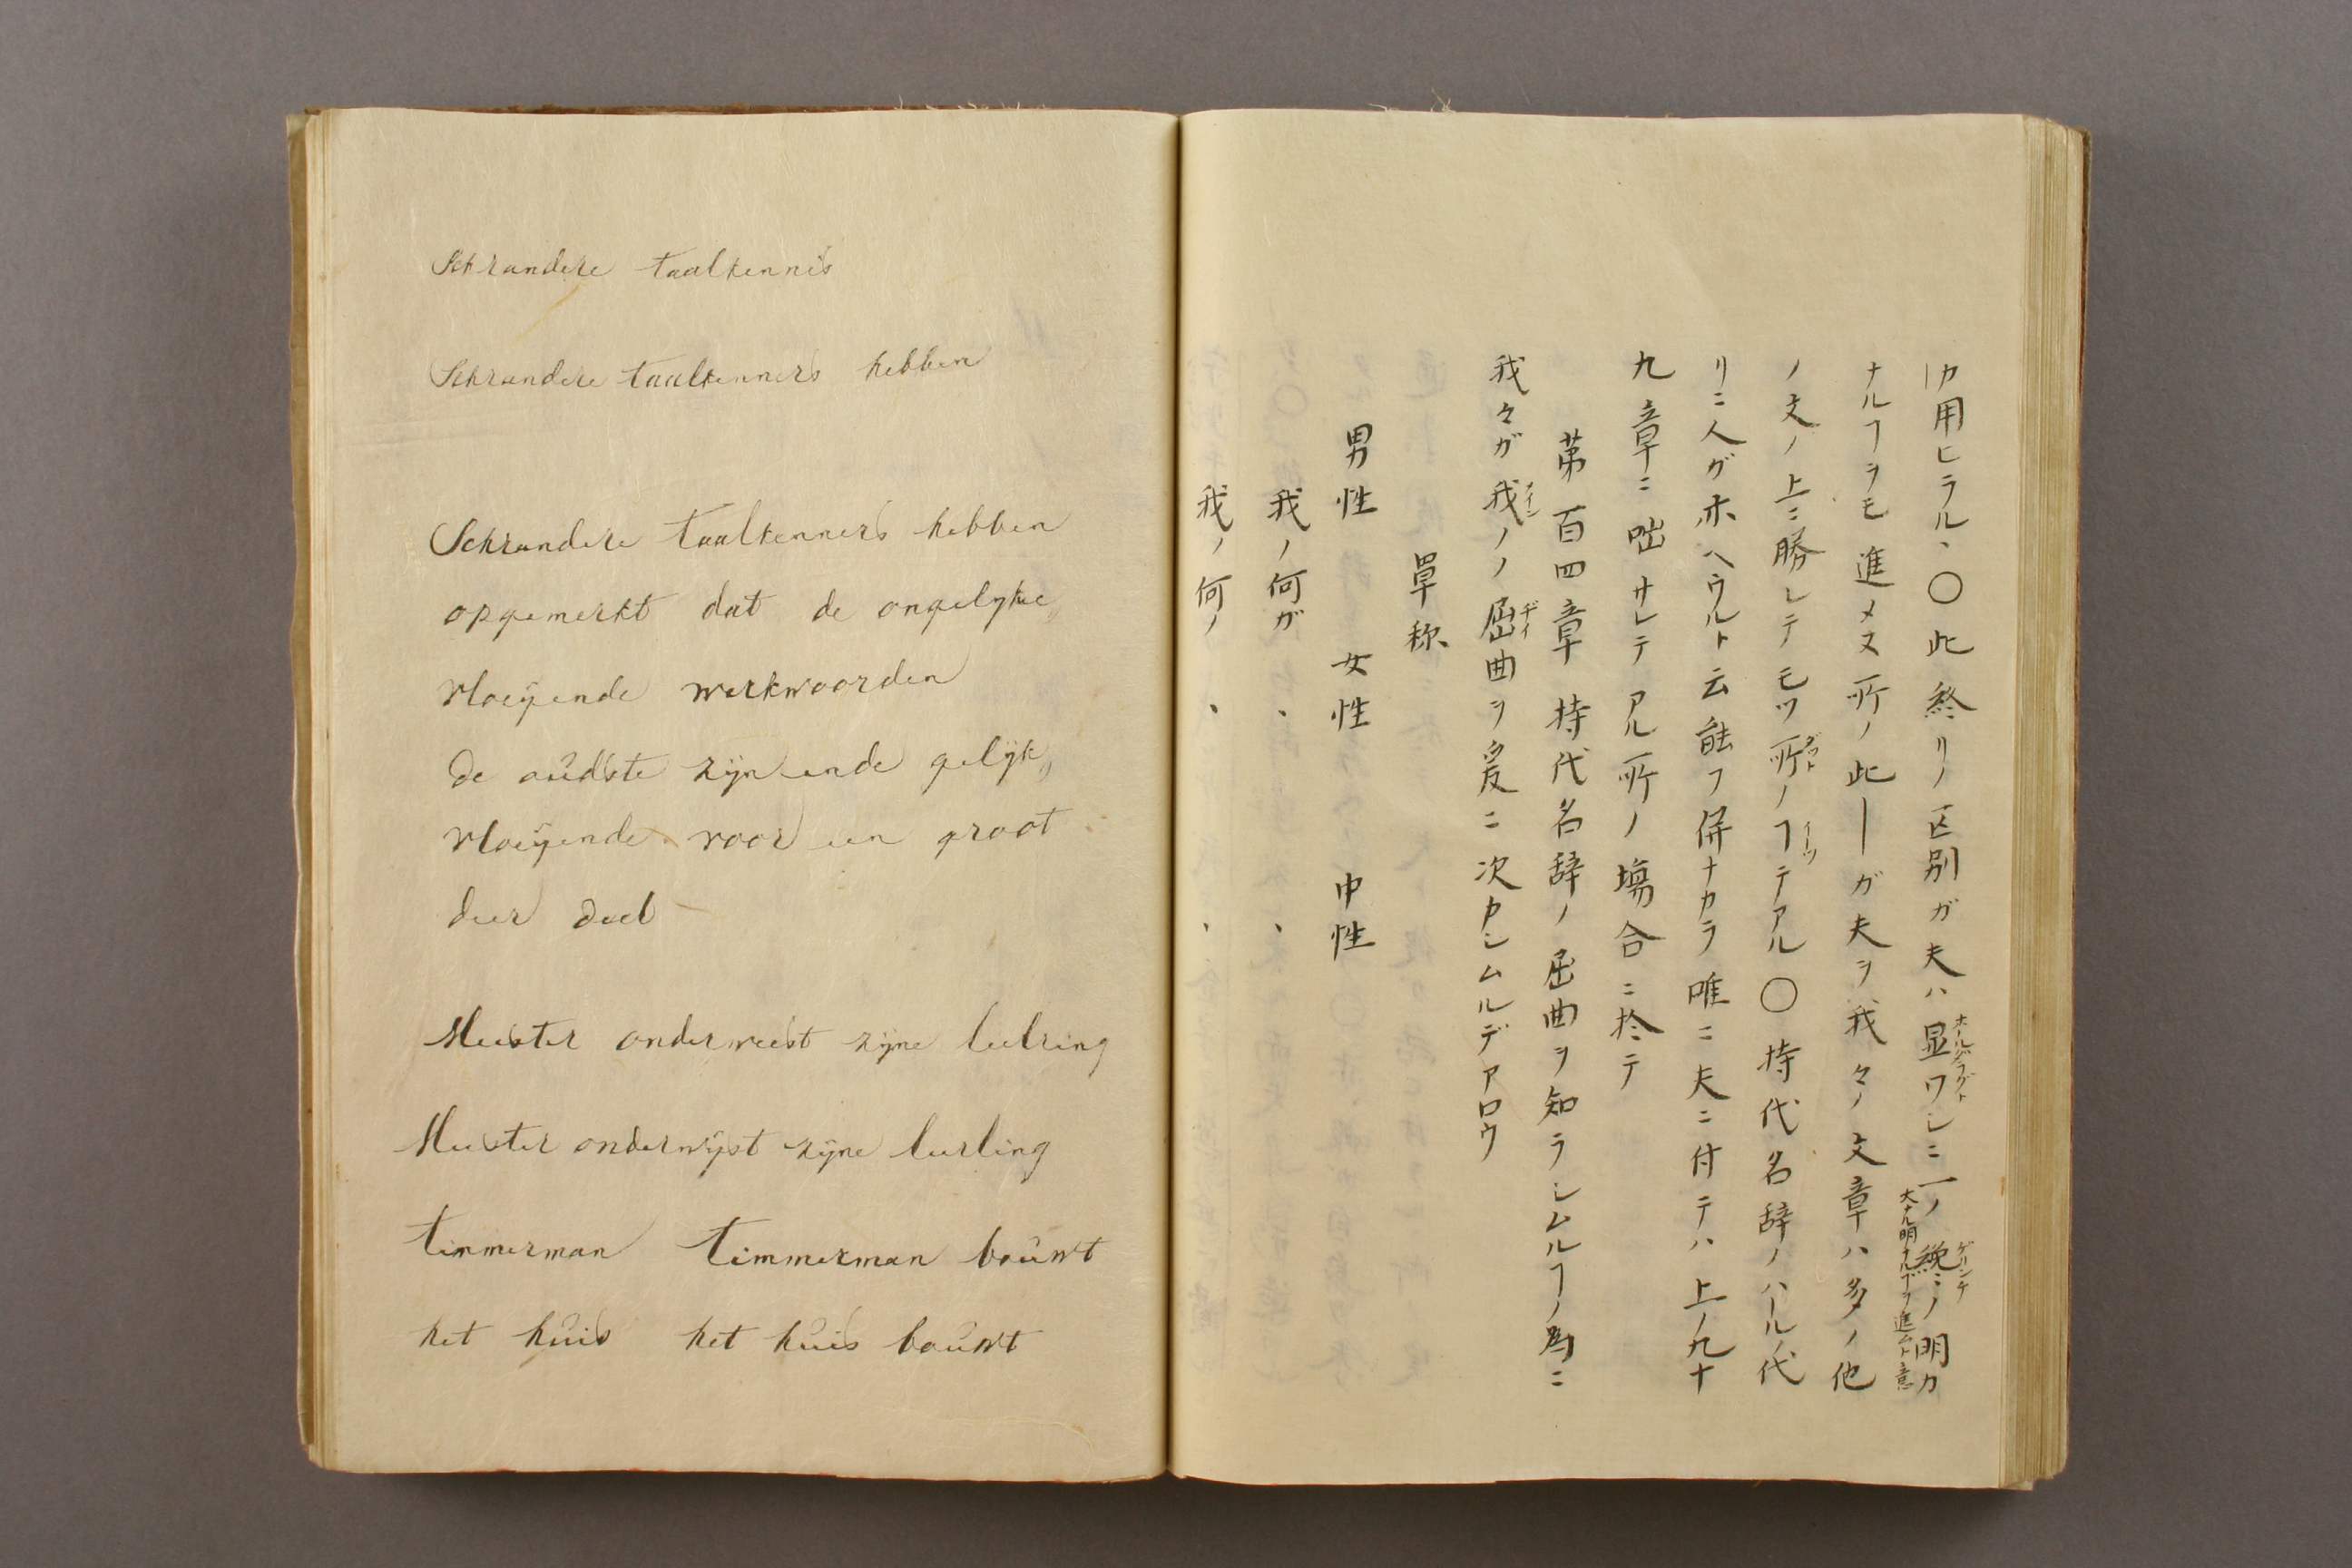 カ用ヒラル、〇此終リノ区別ガ夫ハ显ワシニ一ノ繞ミノ明カ
ホールバラグト
ゲリンチ
大ナル明ナルヿヲ進ムト意
ナルヿヲモ進メヌ所ノ此―ガ夫ヲ我々ノ文章ハ多クノ他
ノ文ノ上ニ勝レテモツ所ノヿテアル〇持代名辞ノハールノ代
リニ人ガ亦ヘウルト云能フ併ナカラ唯ニ夫ニ付テハ上ノ九十
九章ニ咄サレテアル所ノ場合ニ於テ
第百四章 持代名辞ノ屈曲ヲ知ラシムルヿノ為ニ
我々ガ我ノノ屈曲ヲ爰ニ次カシムルデアロウ
メイン
ヂイ
単称
男性 女性 中性
我ノ何ガ 、 、
我ノ何ノ 、 、
Schrandere taalkennis
Schrandere taalkenners hebben
Schrandere taalkenners hebben
opgemerkt dat de ongelyke
vloeijende werkwoorden
de oudste zijn ende gelijk
vloeijende voor een groot
der deel
Meester onderweest zijne leelring
Meester onderwijst zijne leerling
timmerman timmerman bouwt
het huis het huis bouwt